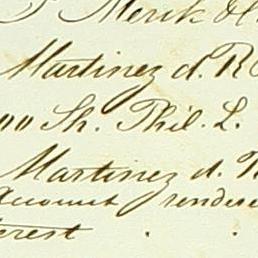 Merik &
Martinez d. R
00 Sh. Phil. L.
Martinez d. R
Account rendere
erest . .